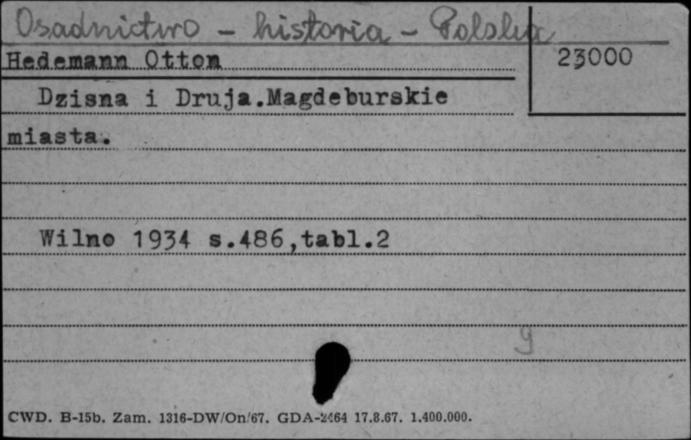 Osadnictwo – historia – Polska
Hedemann Otton
23000
Dzisna i Druja.Magdeburskie
miasta.
Wilno 1934 s.486,tabl.2
g
CWD. B-15b. Zam. 1316-DW/On/67. GDA-2464 17.8.67. 1.400.000.